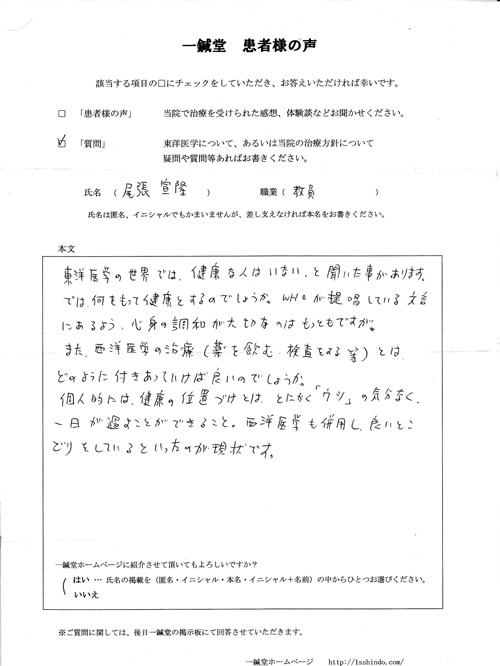 一鍼堂　患者様の声
該当する項目の□にチェックをしていただき、お答えいただければ幸いです。
□ 「患者様の声」　当院で治療を受けられた感想、体験談などお聞かせください。
☑ 「質問」　東洋医学について、あるいは当院の治療方針について
疑問や質問等あればお書きください。
氏名 （ 尾張 宣隆 ）　職業（ 教員 ）
氏名は匿名、イニシャルでもかまいませんが、差し支えなければ本名をお書きください。
本文
東洋医学の世界では、健康な人はいない、と聞いた事があります。
では、何をもって健康とするのでしょうか。WHOが提唱している文言
にあるよう、心身の調和が大切なのはもっともですが。
また、西洋医学の治療（薬を飲む、検査をする等）とは、
どのように付きあっていけば良いのでしょうか。
個人的には、健康の位置づけとは、とにかく「ウツ」の気分なく、
一日が過すことができること。西洋医学も併用し、良いとこ
どりをしているといった方のが現状です。
一鍼堂ホームページに紹介させて頂いてもよろしいですか？
はい … 氏名の掲載を（匿名・イニシャル・本名・イニシャル＋名前）の中からひとつお選びください。
いいえ
※ご質問に関しては、後日一鍼堂の掲示板にて回答させていただきます。
一鍼堂ホームページ　http://1sshindo.com/